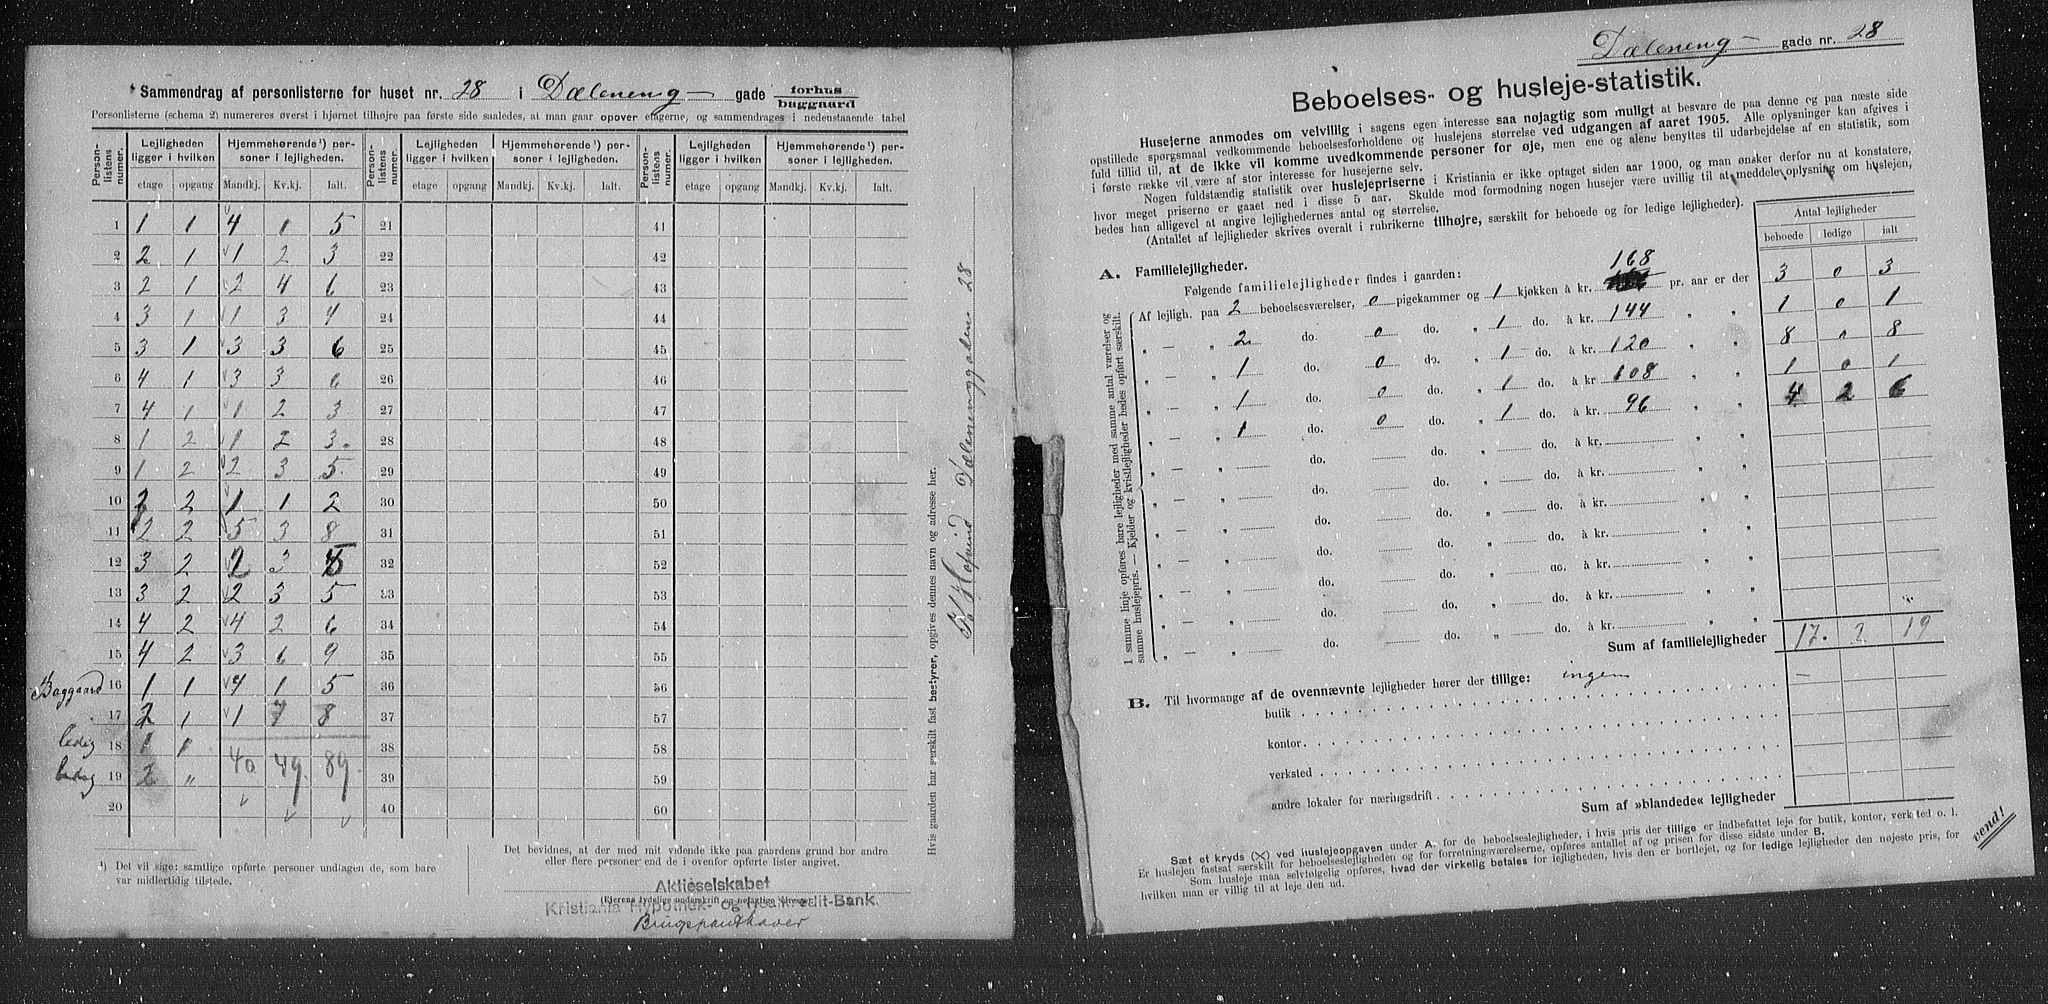 Sammendrag af personlisterne for huset nr. 28 i Dæleneng — gade forhus baggaard
Personlisterne (schema 2) numereres øverst i hjørnet tilhøjre paa første side saaledes, at man gaar opover etagerne, og sammendrages i nedenstaaende tabel
Person-listens nummer. | Lejligheden ligger i hvilken | Hjemmehørende¹) personer i lejligheden. | Person-listens nummer. | Lejligheden ligger i hvilken | Hjemmehørende¹) personer i lejligheden. | Person-listens nummer. | Lejligheden ligger i hvilken | Hjemmehørende¹) personer i lejligheden.
etage opgang Mandkj. Kv.kj. Ialt. etage opgang Mandkj. Kv.kj. Ialt. etage opgang Mandkj. Kv.kj. Ialt.
1 1 1 4 1 5 21 41
2 2 1 1 2 3 22 42
3 2 1 2 4 6 23 43
4 3 1 1 3 4 24 44
5 3 1 3 3 6 25 45
6 4 1 3 3 6 26 46
7 4 1 1 2 3 27 47
8 1 2 1 2 3 28 48
9 1 2 2 3 5 29 49
10 2 2 1 1 2 30 50
11 2 2 5 3 8 31 51
12 3 2 2 3 5 32 52
13 3 2 2 3 5 33 53
14 4 2 4 2 6 34 54
15 4 2 3 6 9 35 55
Baggaard 16 1 1 4 1 5 36 56
17 2 1 1 7 8 37 57
ledig 18 1 " 38 58
ledig 19 2 " 40. 49. 89. 39 59
20 40 60
¹) Det vil sige: samtlige opførte personer undtagen de, som bare var midlertidig tilstede.
Det bevidnes, at der med mit vidende ikke paa gaardens grund bor andre
eller flere personer end de i ovenfor opførte lister angivet.
Aktieselskabet
(Ejerens tydelige underskrift og nøiagtige adresse)
Kristiania Hypothek- og Realkredit-Bank.
Brugspanthaver
Hvis gaarden har særskilt fast bestyrer, opgives dennes navn og adresse her.
Hofvind Dælenenggaden 28
Dæleneng — gade nr. 28
Beboelses- og husleje-statistik.
Husejerne anmodes om velvillig i sagens egen interesse saa nøjagtig som muligt at besvare de paa denne og paa næste side
opstillede spørgsmaal vedkommende beboelsesforholdene og huslejens størrelse ved udgangen af aaret 1905. Alle oplysninger kan afgives i
fuld tillid til, at de ikke vil komme uvedkommende personer for øje, men ene og alene benyttes til udarbejdelse af en statistik, som
i første række vil være af stor interesse for husejerne selv.
Nogen fuldstændig statistik over huslejepriserne i Kristiania er ikke optaget siden aar 1900, og man ønsker derfor nu at konstatere,
hvor meget priserne er gaaet ned i disse 5 aar. Skulde mod formodning nogen husejer være uvillig til at meddele oplysning om huslejen,
bedes han alligevel at angive lejlighedernes antal og størrelse.
(Antallet af lejligheder skrives overalt i rubrikerne tilhøjre, særskilt for beboede og for ledige lejligheder).
Antal lejligheder
beboede ledige ialt
A. Familielejligheder.
Følgende familielejligheder findes i gaarden:
I samme linje opføres bare lejligheder med samme antal værelser og
samme huslejepris. — Kjelder og kvistlejligheder bedes opført særskilt.
168
Af lejligh. paa 2 beboelsesværelser, 0 pigekammer og 1 kjøkken à kr. pr. aar er der 3 0 3
" — " 2 do. 0 do. " 1 do. à kr. 144 " " 1 0 1
" — " 1 do. 0 do. " 1 do. à kr. 120 " " 8 0 8
" — " 1 do. 0 do. " 1 do. à kr. 108 " " 1 0 1
" — " 1 do. 0 do. " 1 do. à kr. 96 " " 4 2 6
" — " do. do. " do. à kr. " "
" — " do. do. " do. à kr. " "
" — " do. do. " do. à kr. " "
" — " do. do. " do. à kr. " "
" — " do. do. " do. à kr. " "
" — " do. do. " do. à kr. " "
" — " do. do. " do. à kr. " "
Sum af familielejligheder 17. 2 19
B. Til hvormange af de ovennævnte lejligheder hører der tillige: ingen —
butik
kontor
verksted
andre lokaler for næringsdrift
Sum af »blandede« lejligheder
Sæt et kryds (X) ved huslejeopgaven under A. for de beboelseslejligheder, i hvis pris der tillige er indbefattet leje for butik, kontor, verksted o. l.
Er huslejen fastsat særskilt for beboelseslejligheden og for forretningsværelserne, opføres antallet af og prisen for disse sidste under B.
Som husleje maa selvfølgelig opføres, hvad der virkelig betales for lejligheden, hvis den er bortlejet, og for ledige lejligheder den nøjeste pris, for
hvilken man er villig til at leje den ud.
vend!